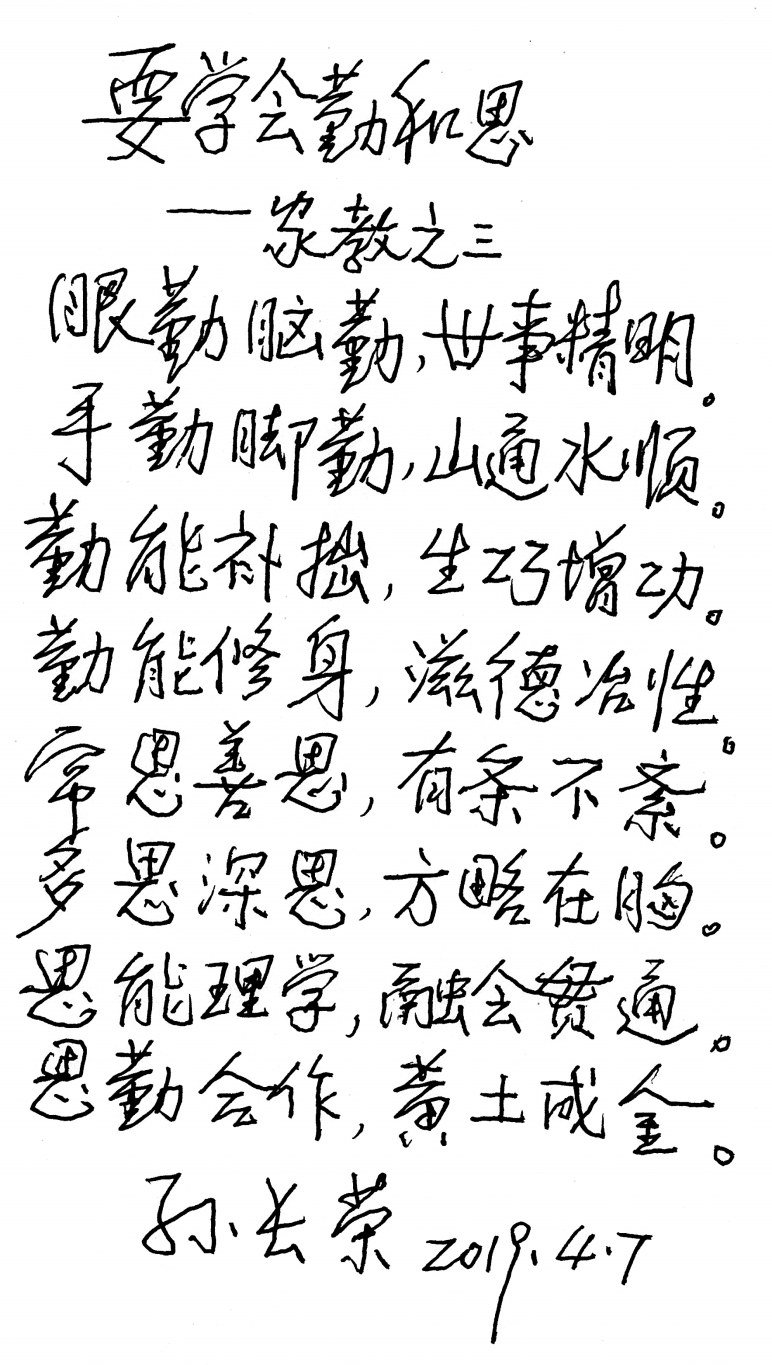 要学会勤和思
——家教之三
眼勤脑勤,世事精明。
手勤脚勤,山通水顺。
勤能补拙,生巧增功。
勤能修身,滋德冶性。
常思善思,有条不紊。
多思深思,方略在胸。
思能理学,融会贯通。
思勤合作,黄土成金。
孙长荣 2019.4.7